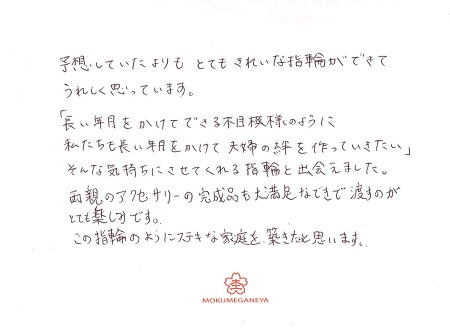 予想していたよりも とてもきれいな指輪ができて
うれしく思っています。
「長い年月をかけてできる木目模様のように
私たちも長い年月をかけて 夫婦の絆を作っていきたい」
そんな気持ちにさせてくれる指輪と出会えました。
両親のアクセサリーの完成品も大満足なできで渡すのが
とても楽しみです。
この指輪のようにステキな家庭を築きたいと思います。
MOKUMEGANEYA